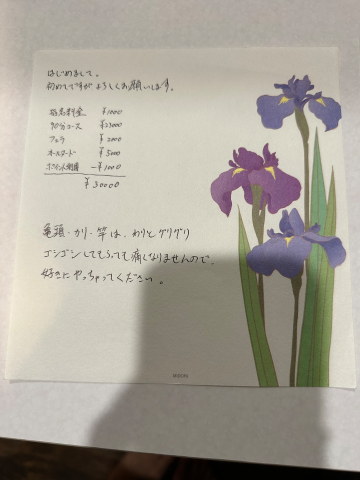 はじめまして。
初めてですが よろしくお願いします。
指名料金 ¥1000
90分コース ¥23000
フェラ ¥2000
オールヌード ¥5000
ポイント利用 -¥1000
¥30000
亀頭・カリ・竿は、わりとグリグリ
ゴシゴシしてもらっても痛くなりませんので、
好きにやっちゃってください。